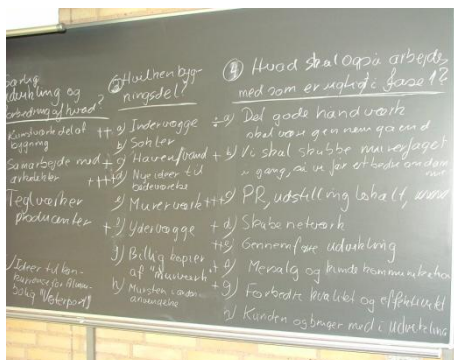 Særlig
udvikling og
forbedring af hvad?
Kunstværk del af
bygning
Samarbejde med
arkitekter
Teglværker
producenter
Idéer til kon-
kurrence for
bolig "Waterpong"
② Hvilken byg-
ningsdel?
++ a) Indervægge
b) Sokler
+ c) Haven/vand
++++ d) Nye ideer til
e) Murerværk
+ f) Ydervægge
g) Billig kopier
af "Murværk"
h) Mursten anden
anvendelse
④ Hvad skal også arbejdes
med som er vigtig i fase 1?
a) Det gode håndværk
skal være gennemgående
+ b) Vi skal skubbe murerfaget
i gang, så vi får et bedre omdømme
+++ c) PR, udstilling lokalt, www
+ d) Skabe netværk
++ e) Gennemføre udvikling
+ f) Mersalg og kundekommunikation
+ g) Forbedre kvalitet og effektivitet
h) Kunden og bruger med i udvikling